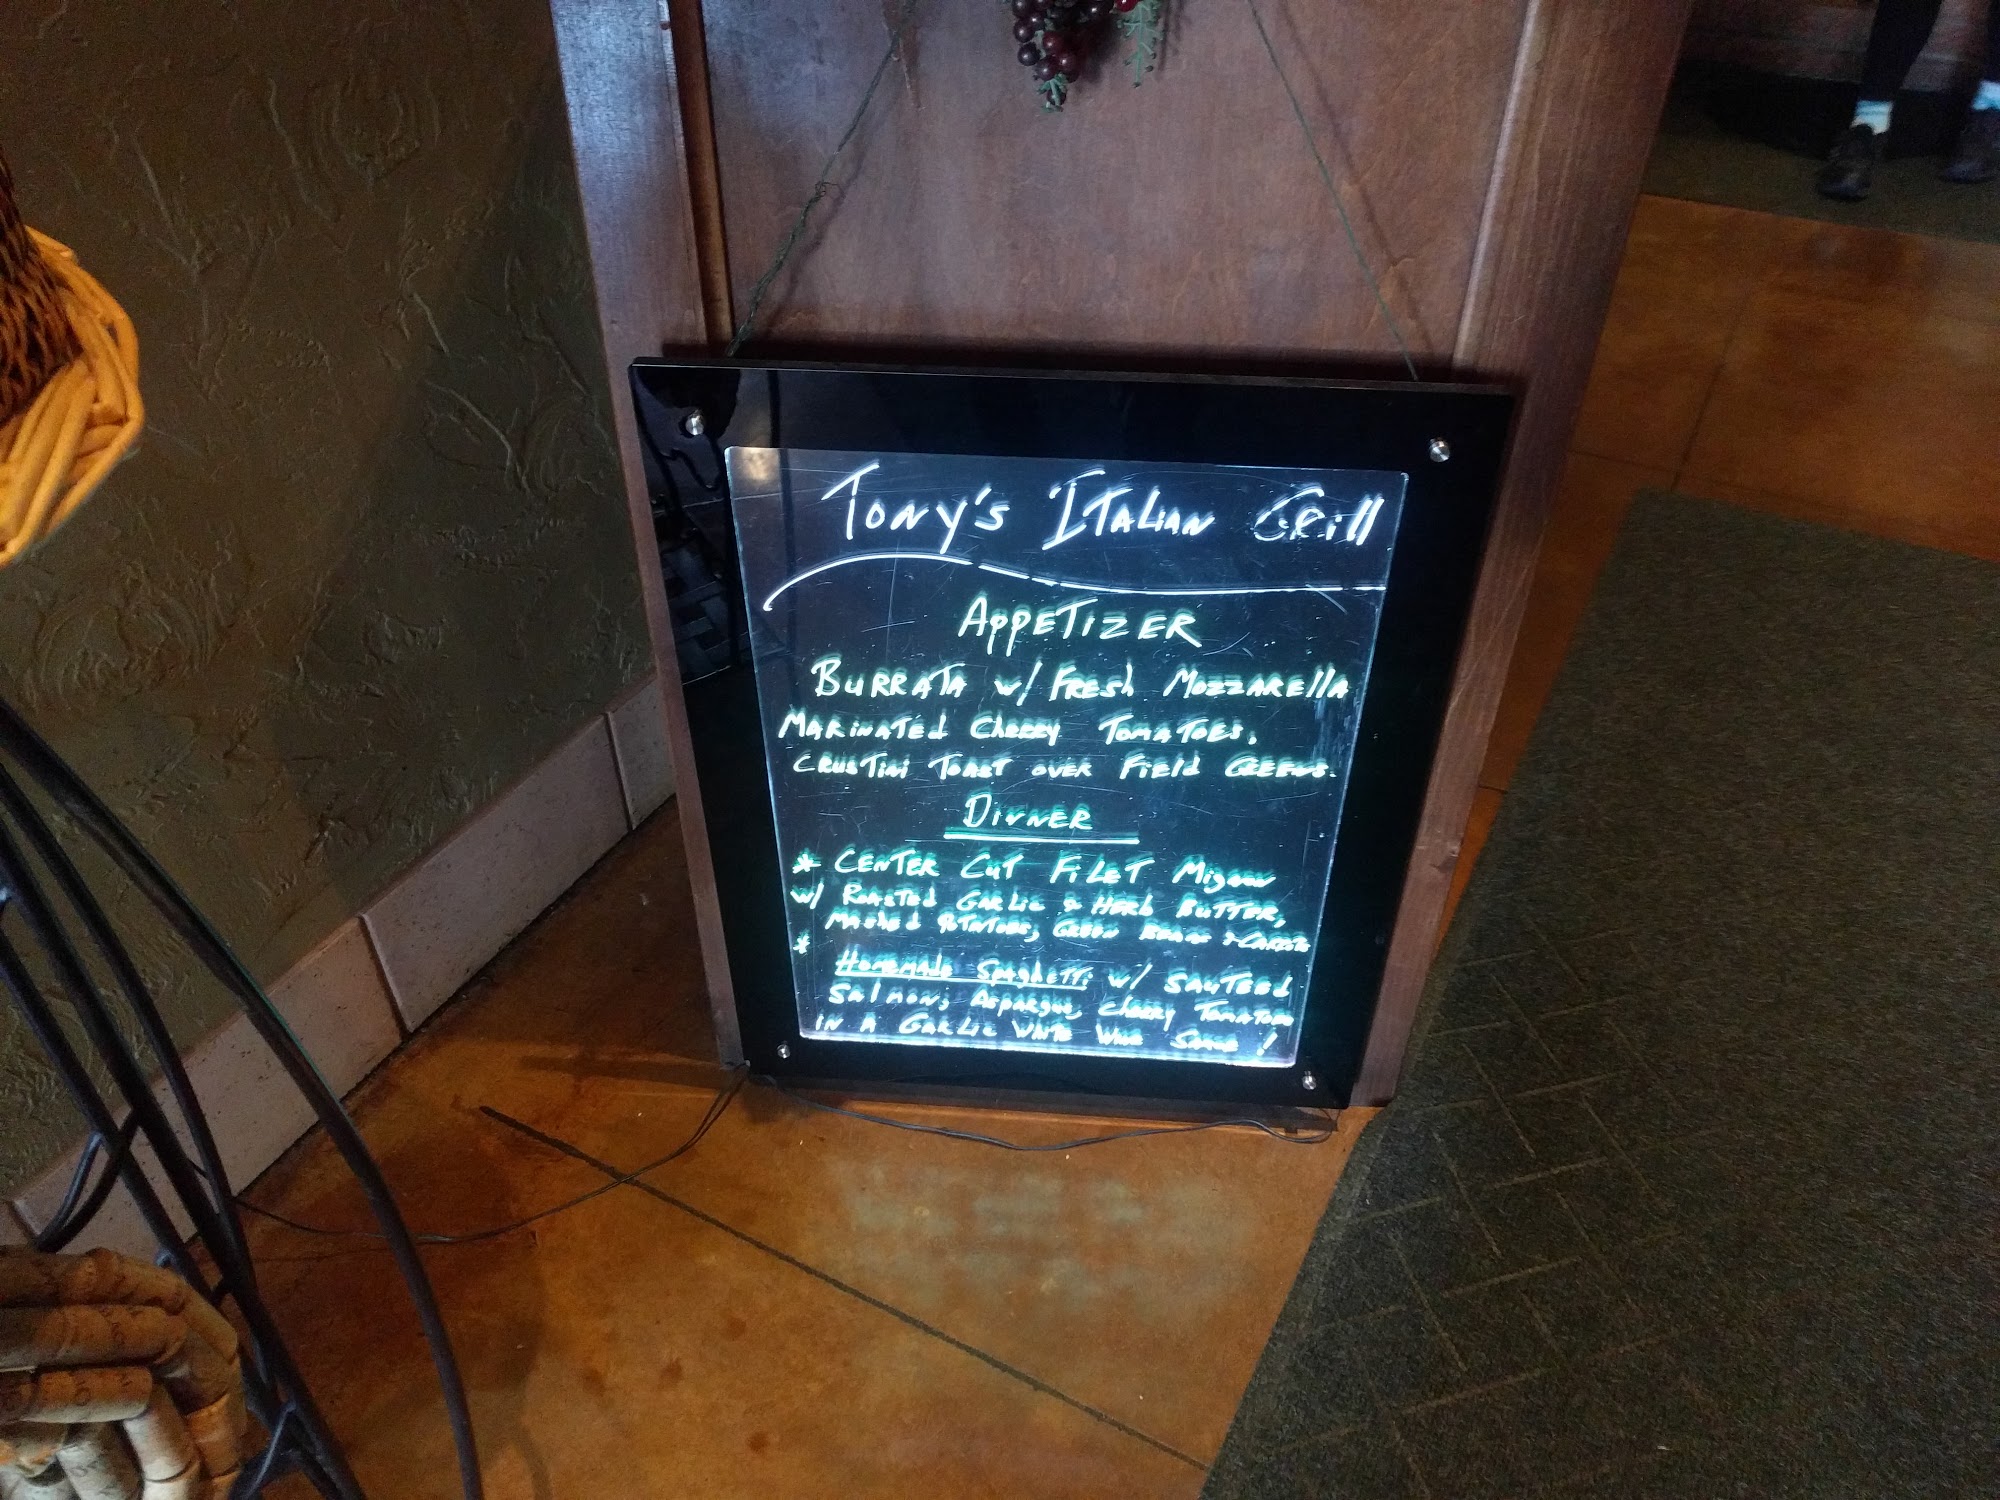 Tony's Italian Grill
Appetizer
Burrata w/ Fresh Mozzarella
Marinated Cherry Tomatoes,
Crustini Toast over Field Greens.
Dinner
* Center Cut Filet Mignon
w/ Roasted Garlic & Herb Butter,
Mashed Potatoes, Green Beans & Carrots
*
Homemade Spaghetti w/ Sauteed
Salmon, Asparagus, Cherry Tomatoes
in a Garlic White Wine Sauce!